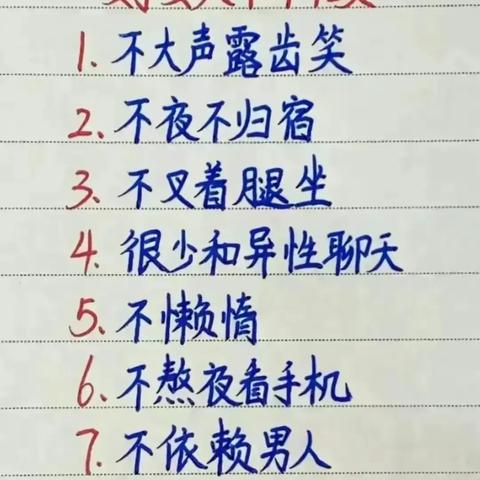 1. 不大声露齿笑
2. 不夜不归宿
3. 不叉着腿坐
4. 很少和异性聊天
5. 不懒惰
6. 不熬夜看手机
7. 不依赖男人